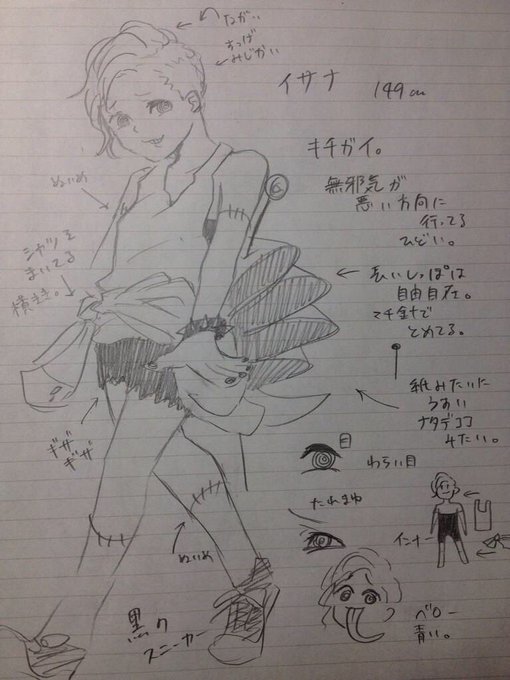 ながい
すっげ
みじかい
イサナ
149cm
キチガイ。
無邪気が
悪い方向に
行ってる
ひどい。
ぬいめ
シャツを
まいてる
横きき。
長いしっぽは
自由自在。
マチ針で
とめてる。
紙みたいに
うすい
ナタデココ
みたい。
ギザ
ギザ
目
わらい目
たれまゆ
インナー
ぬいめ
黒の
スニーカー
ベロー
青い。